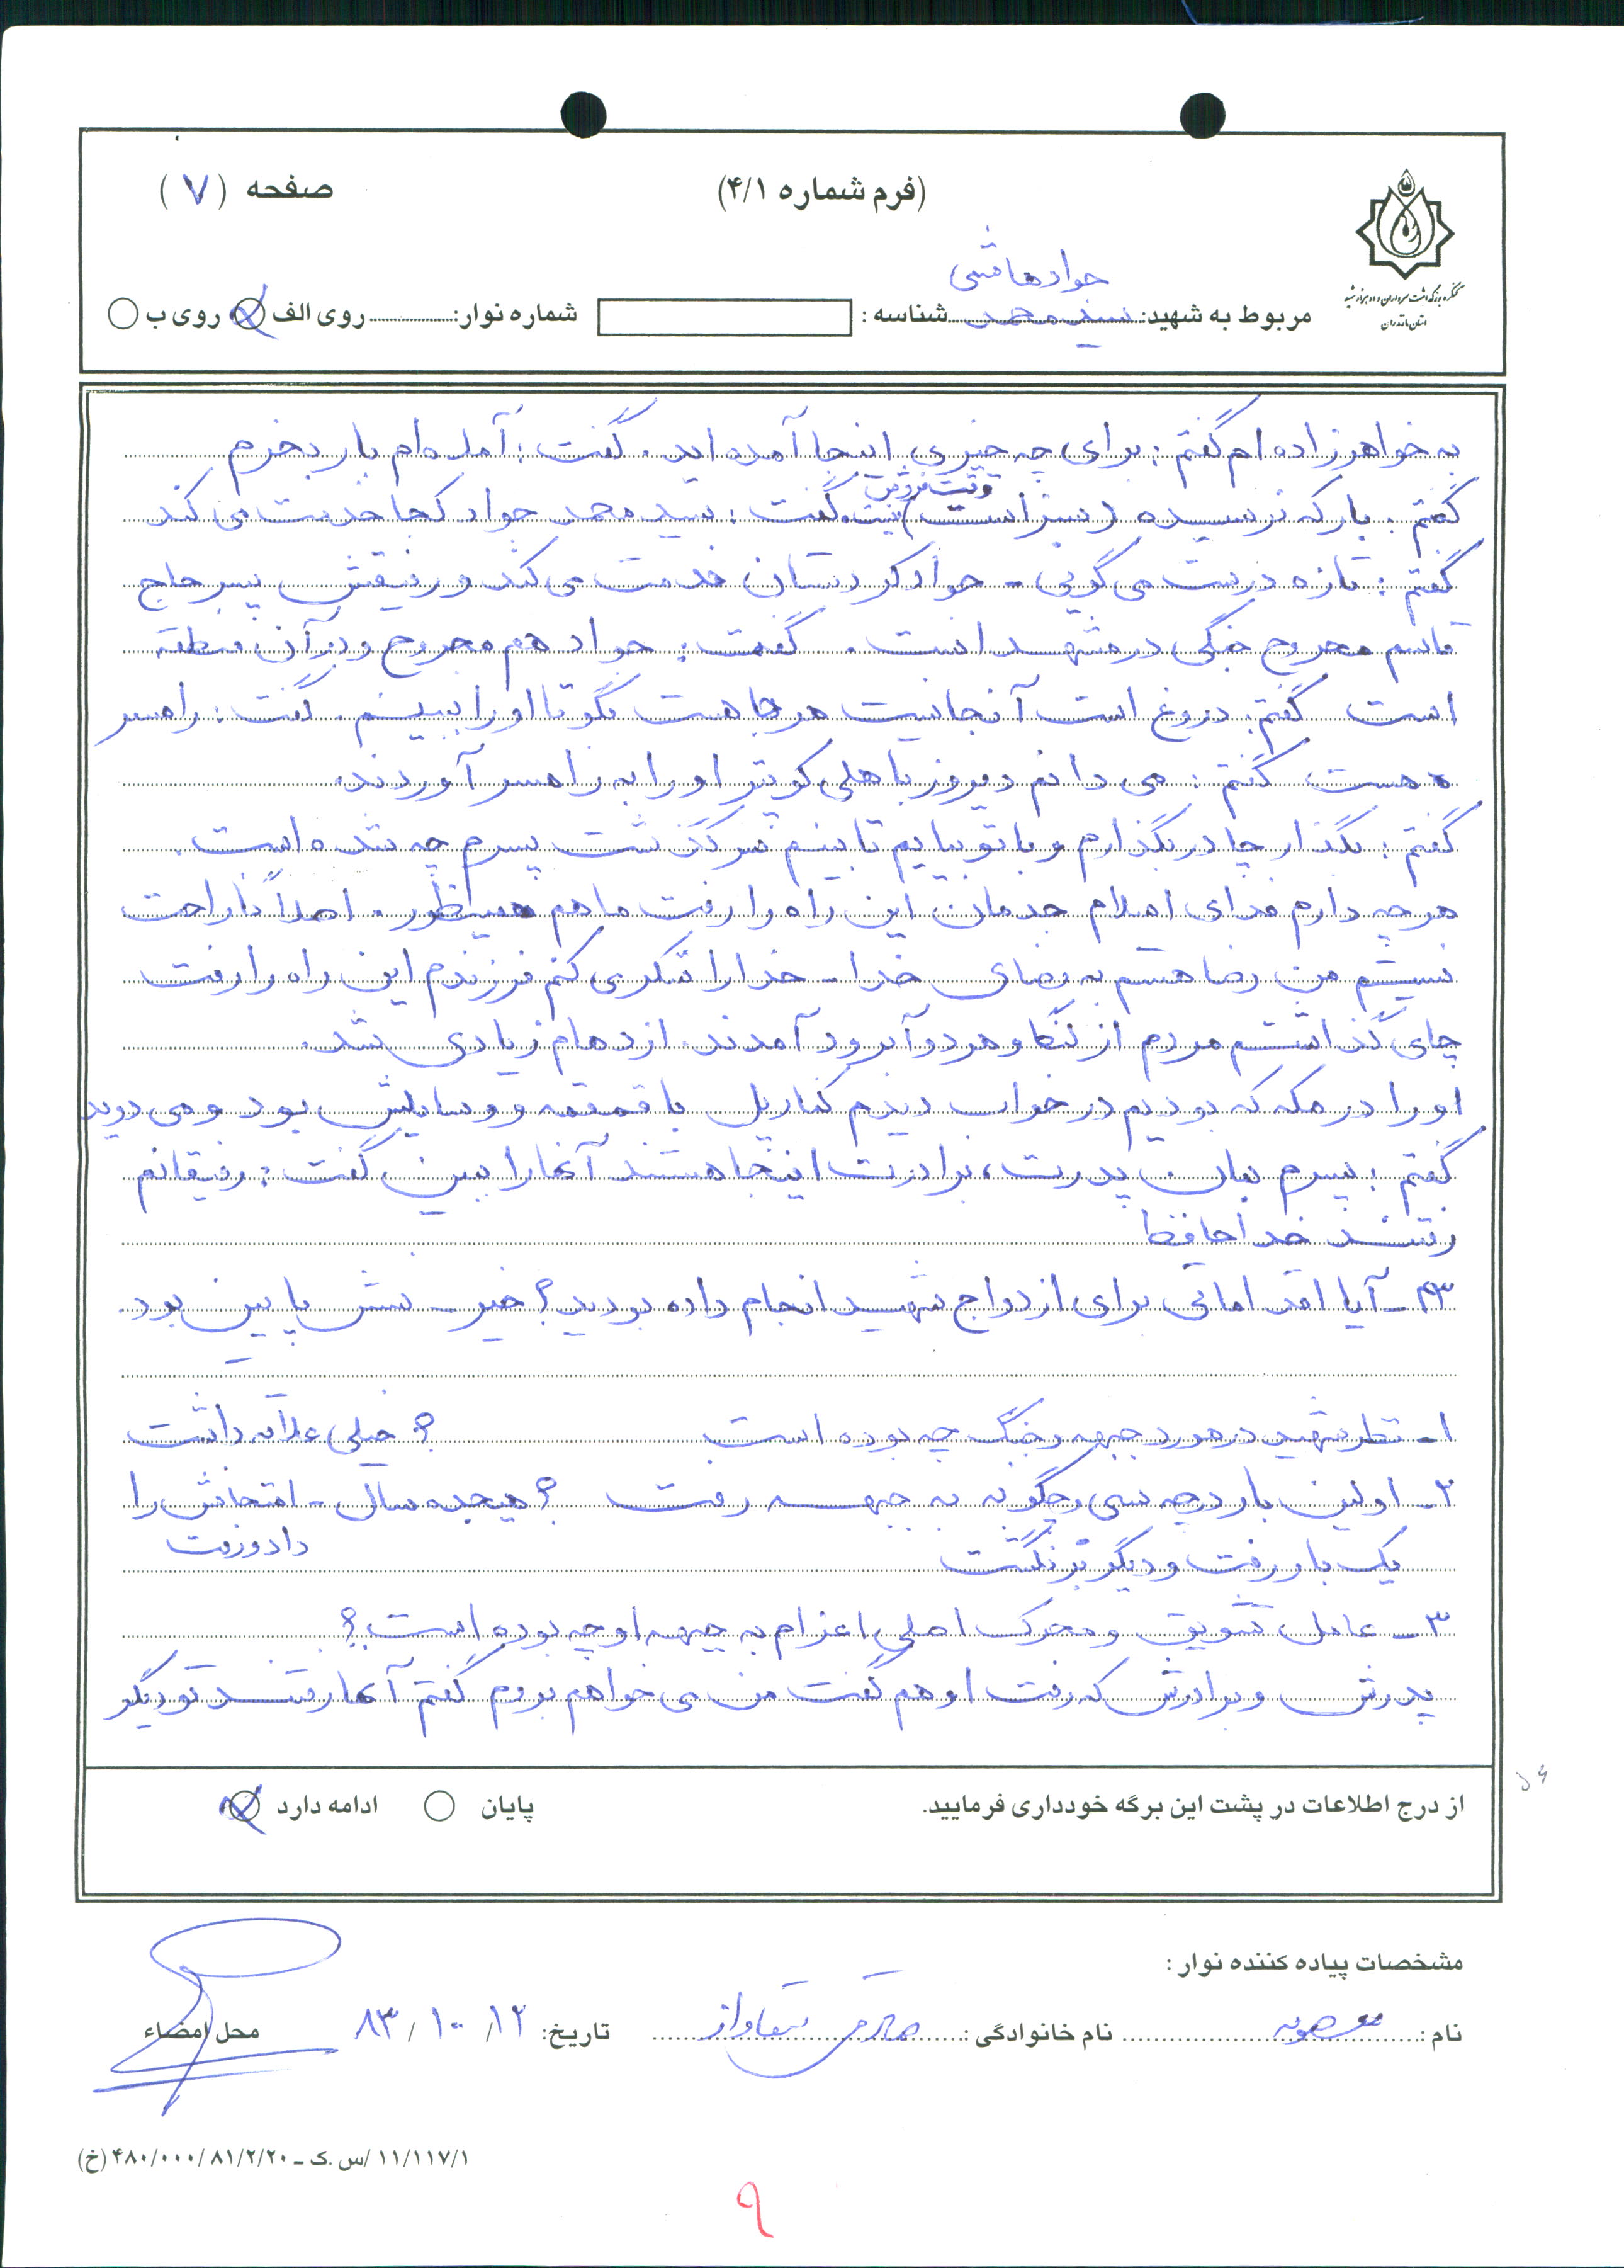 (فرم شماره ۴/۱)
صفحه (۷)
کنگره بزرگداشت سرداران و ده هزار شهید
استان مازندران
جواد هاشمی
مربوط به شهید: سید محمد شناسه: شماره نوار: روی الف روی ب
به خواهرزاده ام گفتم: برای چه چیزی اینجا آمده اید. گفت: آمده ام بار بخرم
وقت فروش
گفتم: بار که نرسیده (سبز است) نیست. گفت: سید محمد جواد کجا خدمت می کند
گفتم: تازه درست می گویی - جواد کردستان خدمت می کند و رفیقش پسر حاج
قاسم مجروح جنگی در مشهد است. گفت: جواد هم مجروح و در آن منطقه
است گفتم: دروغ است آنجا نیست هر جا هست بگو تا او را ببینم. گفت: رامسر
هست گفتم: می دانم دیروز با هلی کوپتر او را به رامسر آوردند.
گفتم: بگذار چادر بگذارم و با تو بیایم تا ببینم سرگذشت پسرم چه شده است.
هر چه دارم فدای اسلام جدمان این راه را رفت ما هم همینطور. اصلاً ناراحت
نیستم من رضا هستم به رضای خدا - خدا را شکر می کنم فرزندم این راه را رفت
چای گذاشتم مردم از تنکا و هردوآبرود آمدند. ازدهام زیادی شد.
او را در مکه که بودیم در خواب دیدم کنار پل با قمقمه و وسایلش بود و می دوید
گفتم: پسرم بمان پدرت، برادرت اینجا هستند آنها را ببین گفت: رفیقانم
رفتند خداحافظ
۴۳- آیا اقداماتی برای ازدواج شهید انجام داده بودید؟ خیر - سنش پایین بود.
۱- نظر شهید در مورد جبهه و جنگ چه بوده است ؟ خیلی علاقه داشت
۲- اولین بار در چه سنی و چگونه به جبهه رفت ؟ هیجده سال - امتحانش را
داد و رفت
یک بار رفت و دیگر برنگشت
۳- عامل تشویق و محرک اصلی اعزام به جبهه او چه بوده است؟
پدرش و برادرش که رفت او هم گفت من می خواهم بروم گفتم آنها رفتند تو دیگر
از درج اطلاعات در پشت این برگه خودداری فرمایید. پایان ادامه دارد
مشخصات پیاده کننده نوار:
نام: معصومه نام خانوادگی: تاریخ: ۸۳/۱۰/۱۲ محل امضاء
۱۱/۱۱۷/۱/س.ک - ۴۸۰/۰۰۰/۸۱/۲/۲۰ (خ)
۹